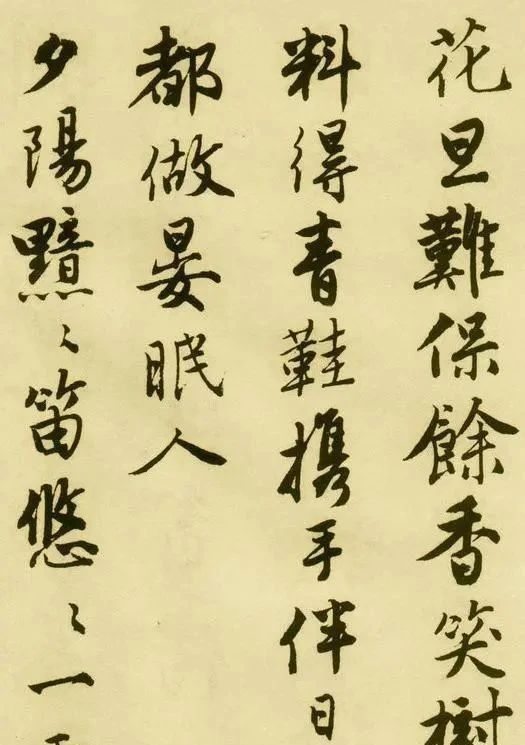 花旦難保餘香笑樹
料得青鞋携手伴日
都做晏眠人
夕陽黯〻笛悠〻一